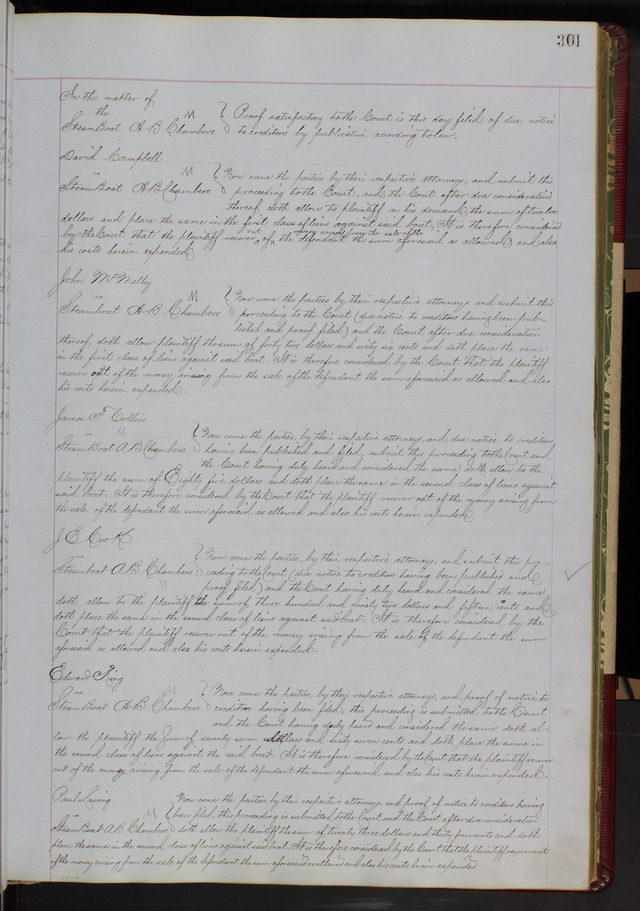 301
In the matter of
the
Steam Boat A B Chambers } Proof satisfactory to the Court is this day filed of due notice
to creditors by publication according to law.
David Campbell
vs
Steam Boat A B Chambers } Now come the parties by their respective attorneys, and submit this
proceeding to the Court, and the Court after due consideration
thereof doth allow to plaintiff on his demand the sum of twelve
dollars and place the same in the first class of liens against said boat. It is therefore considered
out money arising from the sale of the
by the Court that the plaintiff recover of the defendant the sum aforesaid as allowed and also
his costs herein expended
John
vs
Steamboat A B Chambers } Now come the parties by their respective attorneys and submit this
proceeding to the Court (due notice to creditors having been pub-
lished and proof filed) and the Court after due consideration
thereof, doth allow plaintiff the sum of forty two dollars and sixty six cents and doth place the same
in the first class of liens against said boat. It is therefore considered by the Court that the plaintiff
recover out of the money arising from the sale of the defendant the sum aforesaid as allowed and also
his costs herein expended.
James F Collins
vs
Steam Boat A B Chambers } Now come the parties, by their respective attorneys, and due notice to creditors
having been published and filed, submit this proceeding to the Court and
the Court having duly heard and considered the same doth allow to the
plaintiff the sum of Eighty five dollars and doth place the same in the second class of liens against
said boat. It is therefore considered by the Court that the plaintiff recover out of the money arising from
the sale of the defendant the sum aforesaid as allowed and also his costs herein expended
J E Cook
vs
Steamboat A B Chambers } Now come the parties, by their respective attorneys, and submit this pro-
ceeding to the Court (due notice to creditors having been published and
proof filed) and the Court having duly heard and considered the same
doth allow to the plaintiff the sum of three hundred and ninety two dollars and fifteen cents and
doth place the same in the second class of liens against said boat. It is therefore considered, by the
Court that the plaintiff recover out of the money arising from the sale of the defendant the sum
aforesaid as allowed and also his costs herein expended.
Edward King
vs
Steam Boat A B Chambers } Now come the parties, by their respective attorneys, and proof of notice to
creditors having been filed, this proceeding is submitted to the Court
and the Court having duly heard and considered the same doth al-
low the plaintiff the sum of seventy seven dollars and sixty seven cents and doth place the same in
the second class of liens against the said boat. It is therefore considered by the Court that the plaintiff recover
out of the money arising from the sale of the defendant the sum aforesaid and also his costs herein expended.
Paul
Now come the parties by their respective attorneys, and proof of notice to creditors having
vs
been filed, this proceeding is submitted to the Court and the Court after due consideration
Steam Boat A B Chambers } doth allow the plaintiff the sum of twenty three dollars and thirty four cents and doth
place the same in the second class of liens against said boat. It is therefore considered by the Court that the plaintiff recover out
of the money arising from the sale of the defendant the sum aforesaid as allowed and also his costs herein expended